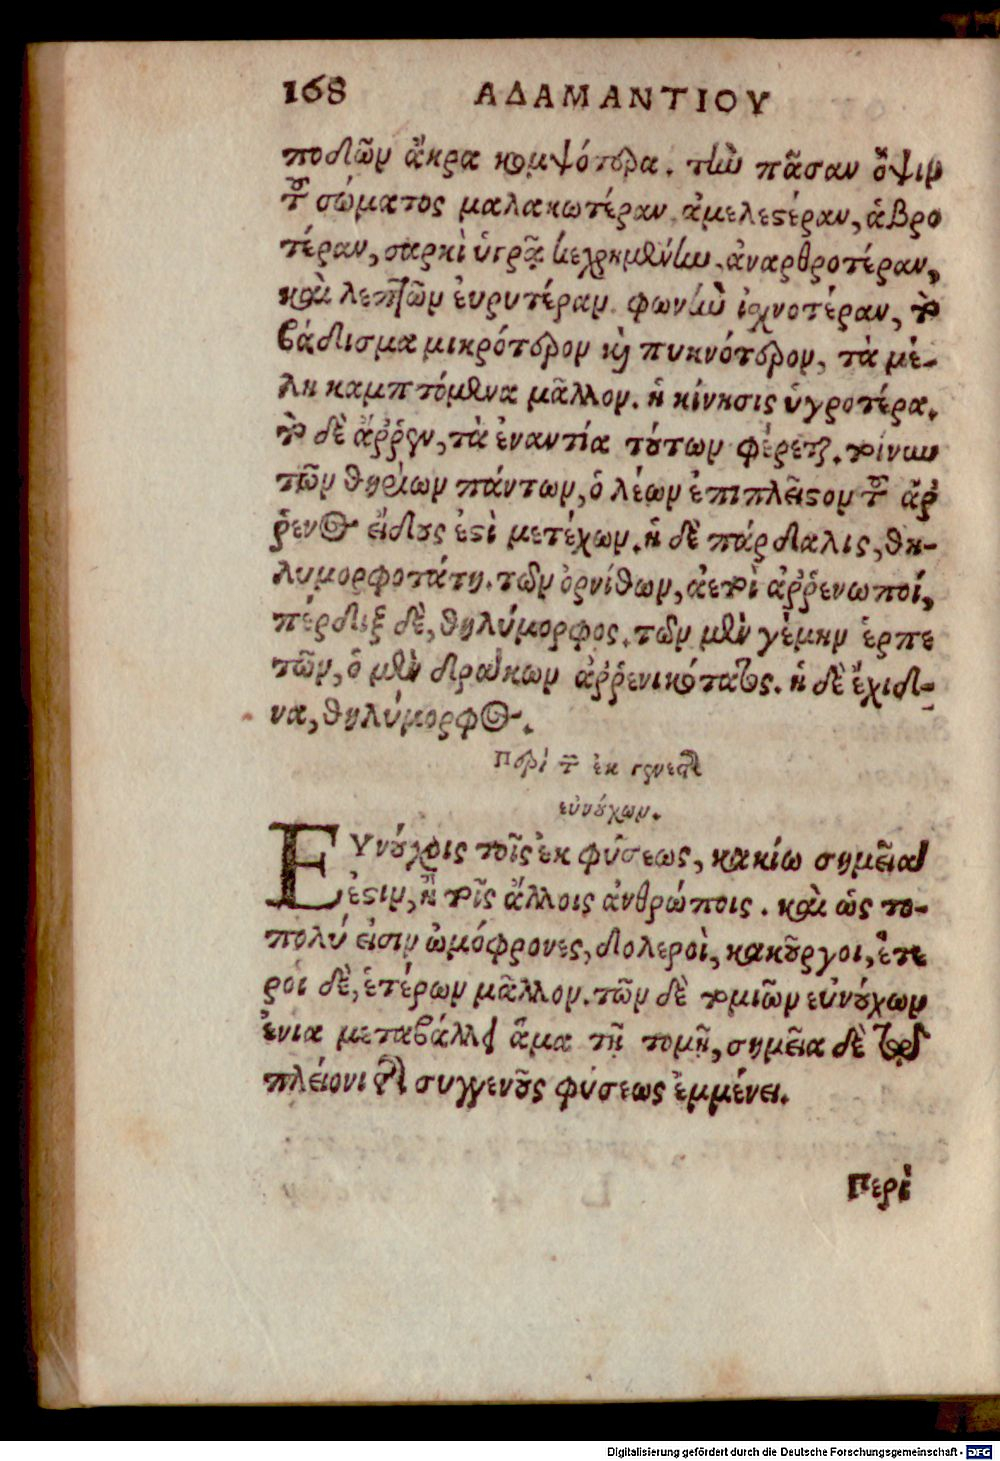 168 ΑΔΑΜΑΝΤΙΟΥ
ποδῶν ἄκρα κομψότερα. τὴν πᾶσαν ὄψιν
τοῦ σώματος μαλακωτέραν ἀμελεστέραν, ἁβρο
τέραν, σαρκὶ ὑγρᾷ κεχρημένην. ἀναρθροτέραν,
καὶ λεπτῶν ἐυρυτέραν. φωνὴν ἰσχνοτέραν, τὸ
βάδισμα μικρότερον καὶ πυκνότερον, τὰ μέ-
λη καμπτόμενα μᾶλλον. ἡ κίνησις ὑγροτέρα.
τὸ δὲ ἄῤῥεν, τὰ ἐναντία τούτων φέρεται. τοίνυν
τῶν θηρίων πάντων, ὁ λέων ἐπιπλεῖστον τοῦ ἄῤ
ῥενος εἴδους ἐστὶ μετέχων. ἡ δὲ πάρδαλις, θη-
λυμορφοτάτη. τῶν ὀρνίθων, ἀετοὶ ἀῤῥενωποί,
πέρδιξ δὲ, θηλύμορφος. τῶν μὲν γέμην ἑρπε
τῶν, ὁ μὲν δράκων ἀῤῥενικότατος. ἡ δὲ ἔχιδ-
να, θηλύμορφος.
Περὶ τῶν ἐκ γενεᾶς
εὐνούχων.
ΕΥνούχοις τοῖς ἐκ φύσεως, κακίω σημεῖα
ἐστιν, ἢ τοῖς ἄλλοις ἀνθρώποις. καὶ ὡς το-
πολύ εἰσιν ὠμόφρονες, δολεροὶ, κακοῦργοι, ἕτε
ροι δὲ, ἑτέρων μᾶλλον. τῶν δὲ τομιῶν εὐνούχων
ἔνια μεταβάλλει ἅμα τῇ τομῇ, σημεῖα δὲ
πλείονι τῆς συγγενοῦς φύσεως ἐμμένει.
Περὶ
Digitalisierung gefördert durch die Deutsche Forschungsgemeinschaft - DFG